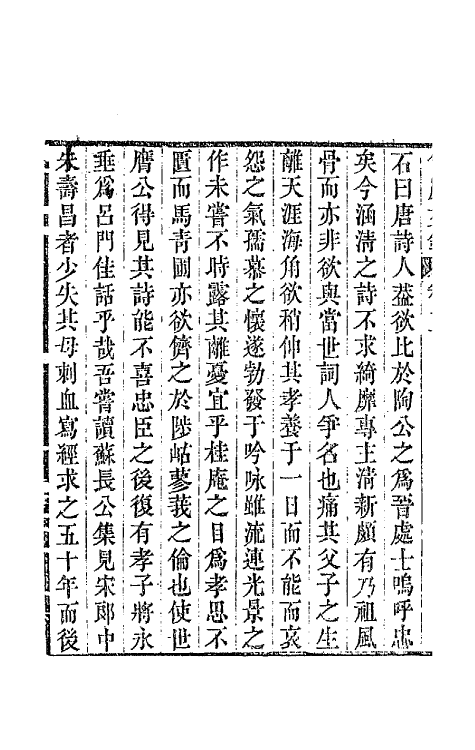 石曰唐詩人葢欲比於陶公之爲晉處士嗚呼忠
矣今涵清之詩不求綺靡專主淸新頗有乃祖風
骨而亦非欲與當世詞人爭名也痛其父子之生
離天涯海角欲稍伸其孝養于一日而不能而哀
怨之氣孺慕之懷遂勃發于吟咏雖流連光景之
作未嘗不時露其離憂宜乎桂庵之目爲孝思不
匱而馬靑圃亦欲儕之於陟岵蓼莪之倫也使世
膺公得見其詩能不喜忠臣之後復有孝子將永
垂爲呂門佳話乎哉吾嘗讀蘇長公集見宋郎中
朱壽昌者少失其母刺血寫經求之五十年而後